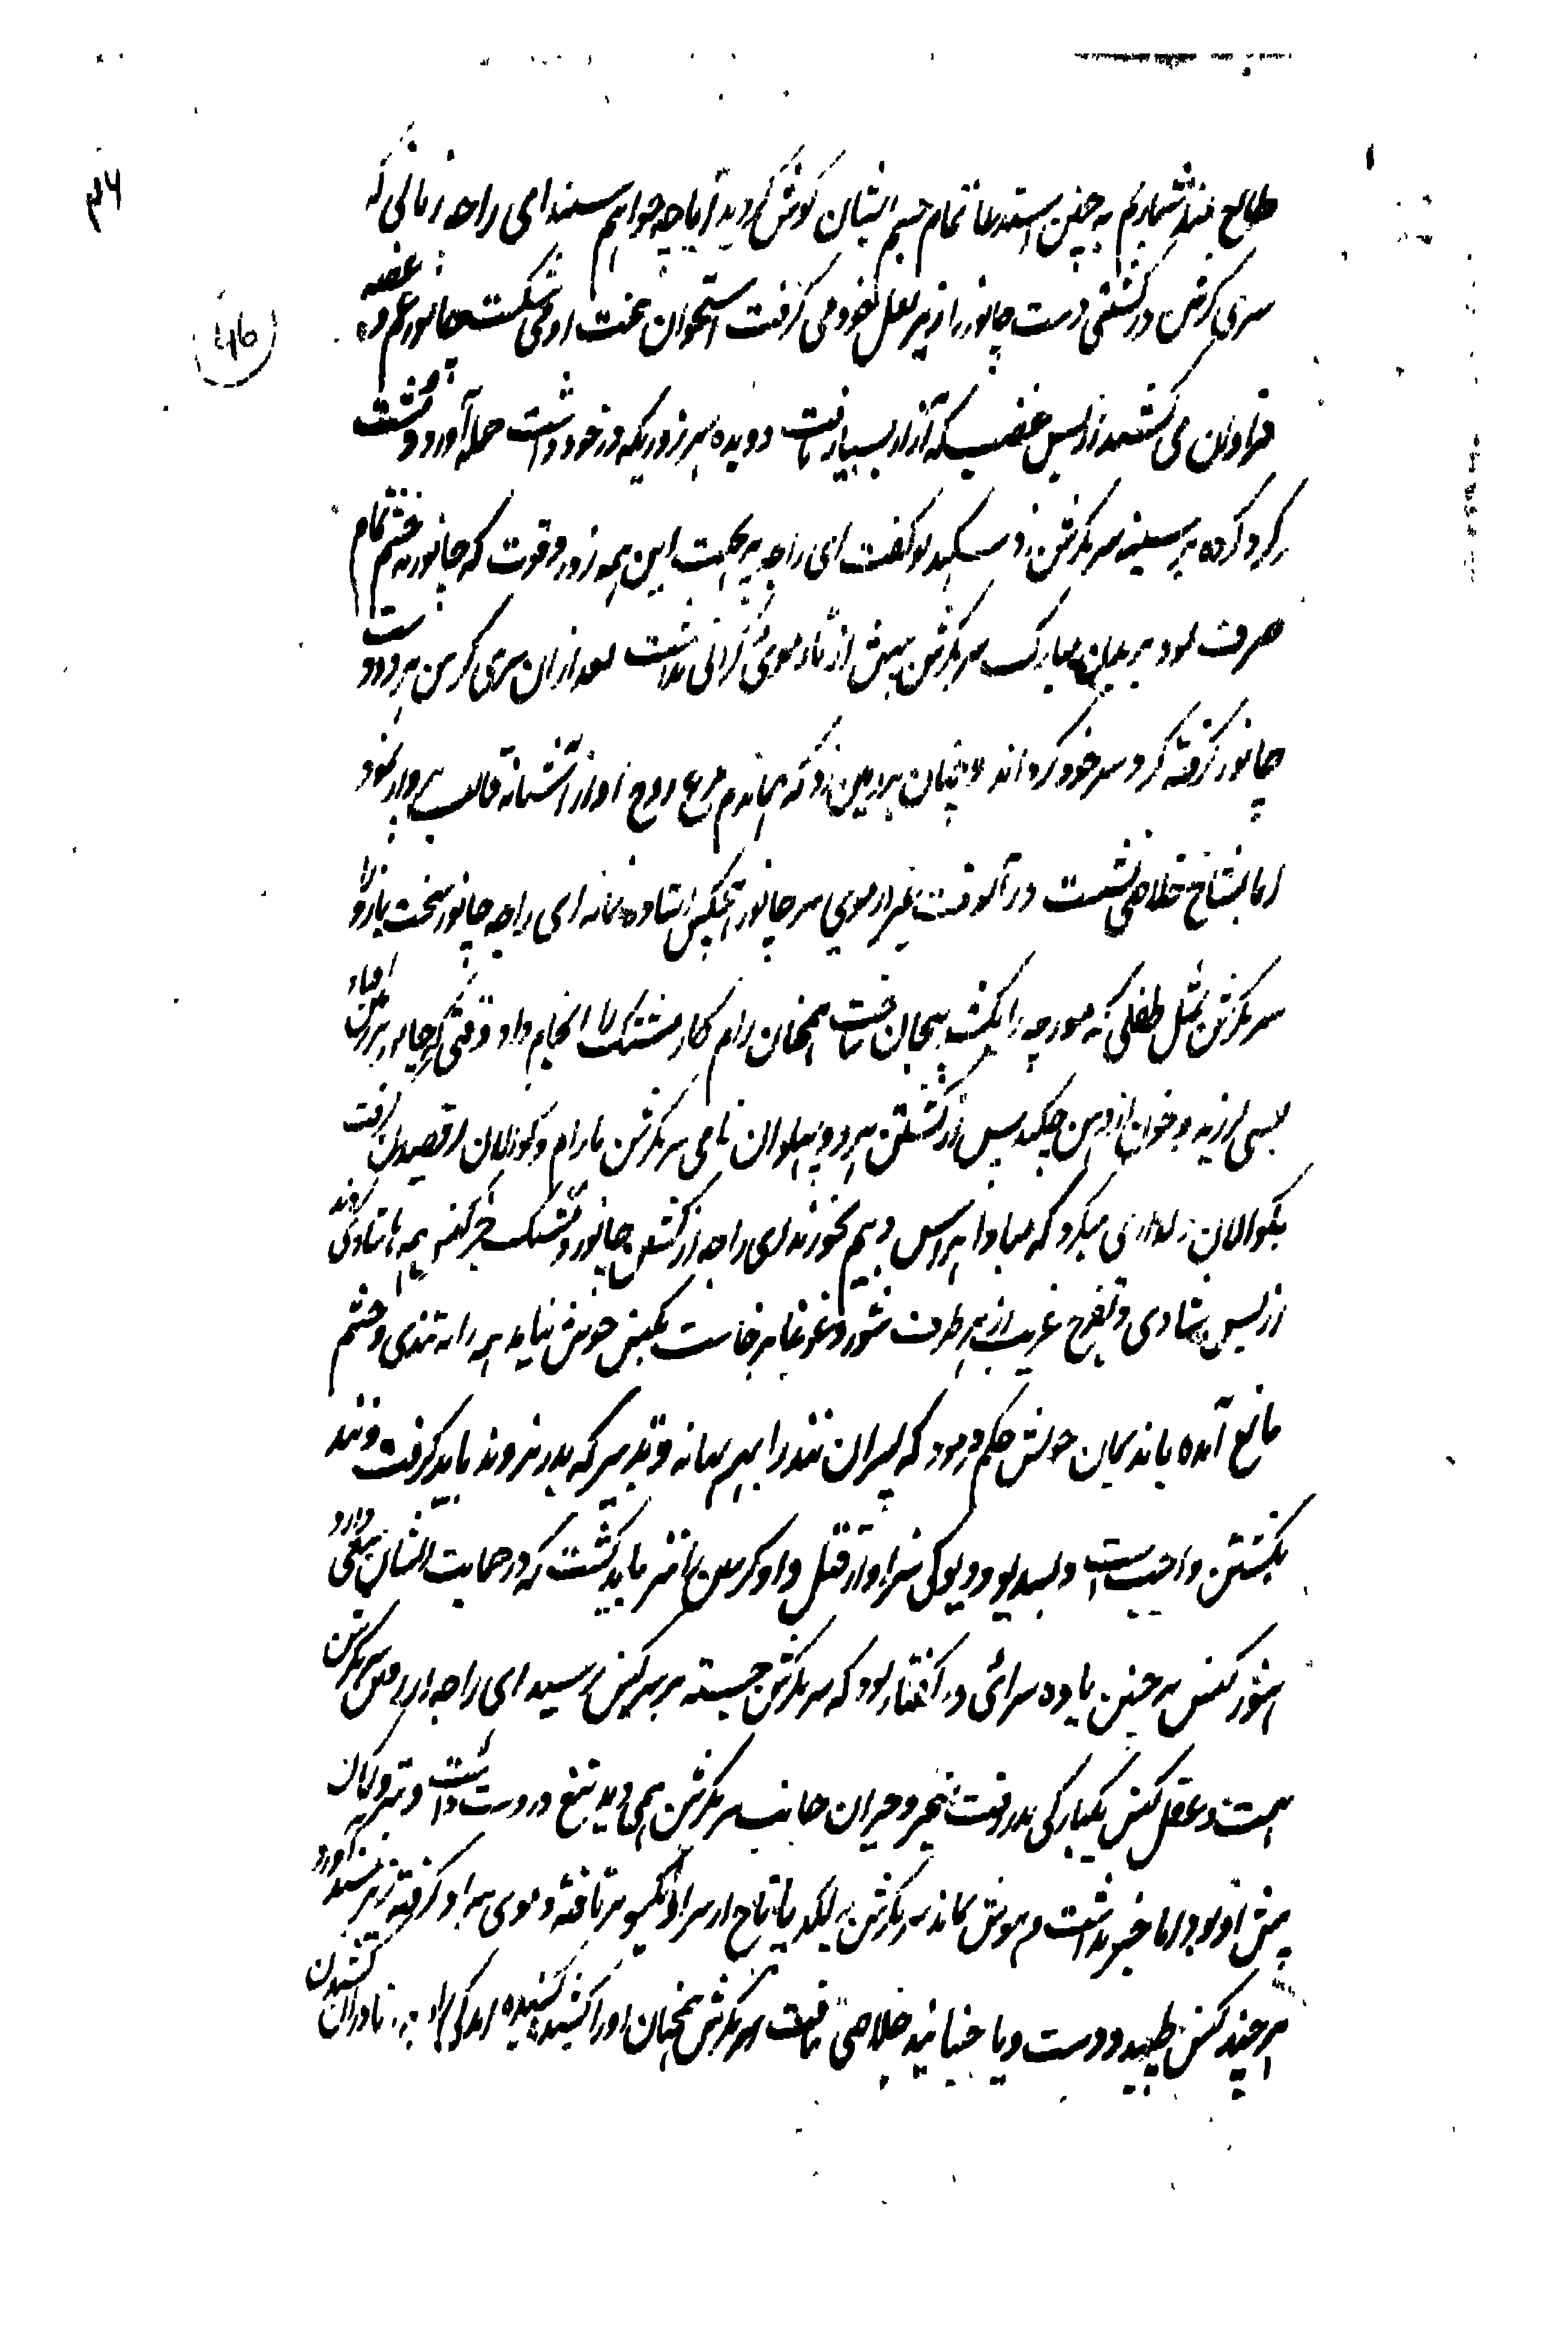 ۳۶
طالع مند شماریم به چنین استدعا تمام جسم ایشان گوش گردید تا پاچه جوابم سنید ای راجه زمانی که
46
سری کرشن در کشتی دست چانور را زیر بغل خود می گرفت استخوان سخت او می شکست چانور غم و غصه
فراوان می کشید از بس غضب که آزار بسیار یافت دویده بهر زوریکه در خود داشت حمله آورد و مشت
گرد کرده بر سینه سریکرشن زد سکهدیو گفت ای راجه پریچهت این همه زور و قوت که چانور به خشم تمام
صرف نمود بر بدن مبارک سریکرشن بیش از تار موی گرانی نداشت بعد ازان سری کرشن هر دو دست
چانور گرفته گرد سر خود گرداند و چنان بر زمین زد که هماندم مرغ روح او از آشیانه قالب پرواز نمود
اما بشاخ خلاصی نشست در آنوقت غیر از موی سر چانور هیچکس استاده نماند ای راجه چانور سخت بازو را
سریکرشن بمثل طفلی که مورچه را بکشد بیجان ساخت همچنان رام کار مشتک را انجام داد وقتی که چانور بر زمین افتاد
بسی لرزید و خون از دهن چکید پس از کشتن هر دو پهلوان نامی سریکرشن با رام و گوالان رقصیدن گرفت
بگوالان دلداری میکرد که مبادا هراس و بیم بخورند ای راجه از کشتن چانور و مشتک جز کنس همه ها شادی کردند
از بس شادی و تفرح غریب از هر طرف شور و غوغا برخاست بکنس خوش نیامد همه را به تندی و خشم
مانع آمده با ندیمان خویش حکم فرمود که پسران نند را بهر بهانه و تدبیر که بدر نروند باید گرفت و نند
بکشتن واجب است و بسدیو و دیوکی سزاوار قتل و اوگرسین را نیز باید کشت که در حمایت ایشان سعی دارد
هنوز کنس به چنین یاوه سرائی در گفتار بود که سریکرشن جسته بر سر کنس رسید ای راجه از آمدن سریکرشن
همت و عقل کنس یکبارگی بدر رفت متحیر و حیران جانب سریکرشن همی دید تیغ در دست داشت و تیر و کمان
پیش او بود اما خبر نداشت و هوش نماند سریکرشن به لگد پا تاج از سر او انگیخته برتافته و موی سر او گرفته زیر کشید آورد
هر چند کنس طپید و دست و پا جنبانید خلاصی نیافت سریکرشن همچنان او را کشید کشیده کشیدن